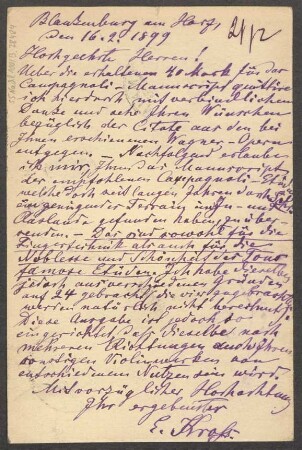 Blankenburg am Harz,
den 16.2.1899
21/2
Hochgeehrte Herren!
Ueber die erhaltenen 40 Mark für das
Campagnoli-Manuscript quittire
ich hierdurch mit verbindlichem
Danke und sehe Ihren Wünschen
bezüglich der Citate aus den bei
Ihnen erschienenen Wagner-Opern
entgegen. - Nachfolgend erlaube
ich mir, Ihnen das Manuscript
der empfohlenen Campagnoli-Etüden
welche seit langen Jahren durch
ungenügender Terrain im In- und
Auslande gefunden haben, zu über
senden. - Das sind sowohl für die
Fingertechnik als auch für die
Noblesse und Schönheit des Tons
famose Etüden. Ich habe dieselben
jedoch aus verschiedenen Gründen
auf 24 gebracht, die
werden natürlich nicht berechnet.
Diese Ausgabe ist jedoch so
eingerichtet, daß dieselbe nach
mehreren Richtungen auch Ihren
sonstigen Violinwerken von
entschiedenem Nutzen sein wird.
Mit vorzüglicher Hochachtung
Ihr ergebenster
E. Kross.